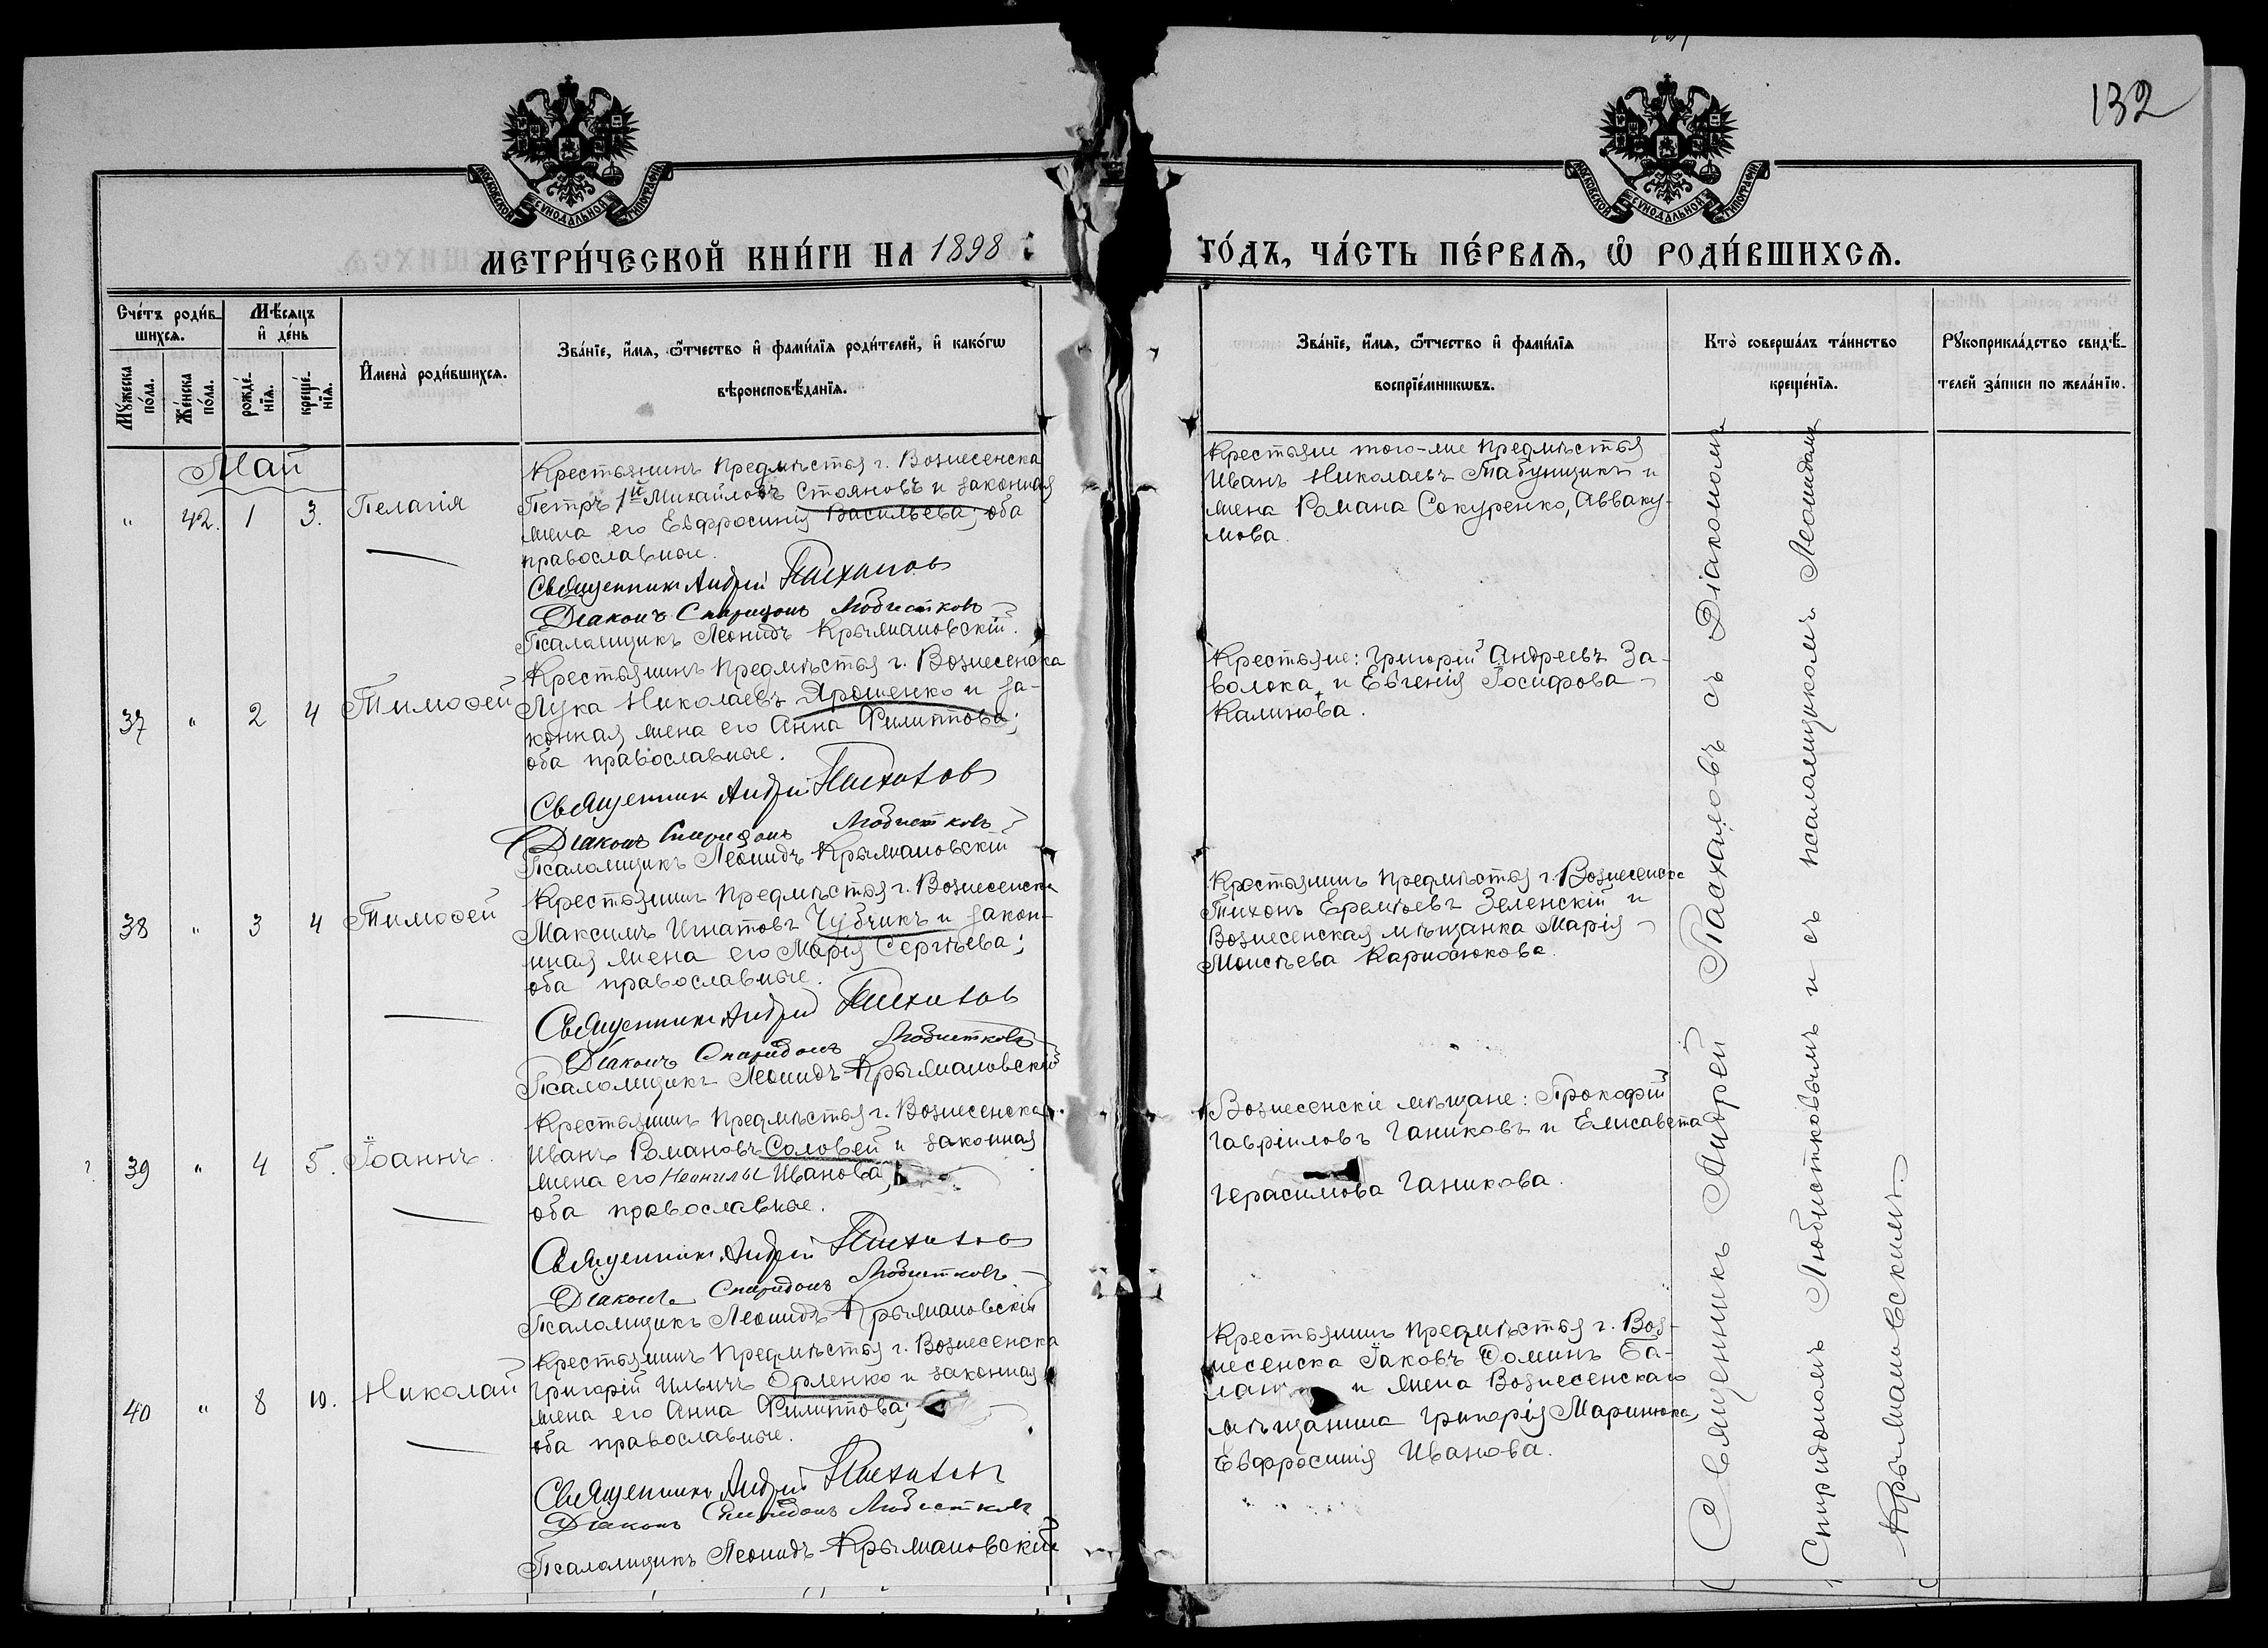 132
МОСКОВСКОЙ СѴНОДАЛЬНОЙ ТИПОГРАФІИ
МОСКОВСКОЙ СѴНОДАЛЬНОЙ ТИПОГРАФІИ
МЕТРИ́ЧЕСКОЙ КНИ́ГИ НА 1898
ГО́ДЪ, ЧА́СТЬ ПЕ́РВАЯ, Ѡ РОДИ́ВШИХСЯ.
Сче́тъ роди́в-
шихся.
Мꙋ́жеска по́ла.
Же́нска по́ла.
Мѣ́сяцъ
и҆ де́нь
рожде́-
нїя.
креще́-
нїя.
И҆мена̀ роди́вшихся.
Зва́нїе, и҆́мя, ѻ҆́тчество и҆ фами́лїя роди́телей, и҆ како́гѡ
вѣроисповѣ́данїя.
Зва́нїе, и҆́мя, ѻ҆́тчество и҆ фами́лїя
воспрїе́мникѡвъ.
Кто̀ соверша́лъ та́инство
креще́нїя.
Рꙋкоприкла́дство свидѣ́-
телей за́писи по жела́нїю.
Май
" 42. 1 3. Пелагія
Крестьянинъ предмѣстья г. Вознесенска
Петръ 1й Михайловъ Стояновъ и законная
жена его Евфросинія Васильева; оба
православные.
Священникъ Андрей Пасхаловъ
Діаконъ Спиридонъ Любистковъ
Псаломщикъ Леонидъ Крыжановскій.
Крестьяне того-же предмѣстья
Иванъ Николаевъ Табунщикъ и
жена Романа Сокуренко, Авваку-
мова.
37 " 2 4 Тимоѳей
Крестьянинъ предмѣстья г. Вознесенска
Лука Николаевъ Ярошенко и за-
конная жена его Анна Филиппова;
оба православные.
Священникъ Андрей Пасхаловъ
Діаконъ Спиридонъ Любистковъ
Псаломщикъ Леонидъ Крыжановскій
Крестьяне: Григорій Андреевъ За-
волока, и Евгенія Іосифова
Калинова.
38 " 3 4 Тимоѳей
Крестьянинъ предмѣстья г. Вознесенска
Максимъ Игнатовъ Чубчикъ и закон-
ная жена его Марія Сергѣева;
оба православные.
Священникъ Андрей Пасхаловъ
Діаконъ Спиридонъ Любистковъ
Псаломщикъ Леонидъ Крыжановскій
Крестьянинъ предмѣстья г. Вознесенска
Тихонъ Еремѣевъ Зеленскій и
Вознесенская мѣщанка Марія
Моисѣева
39 " 4 5. Іоаннъ.
Крестьянинъ предмѣстья г. Вознесенска
Иванъ Романовъ Соловей и законная
жена его Неонилы Иванова,
оба православные.
Священникъ Андрей Пасхаловъ
Діаконъ Спиридонъ Любистковъ
Псаломщикъ Леонидъ Крыжановскій
Вознесенскіе мѣщане: Прокофій
Гавріиловъ Ганиковъ и Елисавета
Герасимова Ганикова.
40 " 8 10. Николай
Крестьянинъ предмѣстья г. Вознесенска
Григорій Ильичъ Орленко и законная
жена его Анна Филиппова;
оба православные.
Священникъ Андрей Пасхаловъ
Діаконъ Спиридонъ Любистковъ
Псаломщикъ Леонидъ Крыжановскій
Крестьянинъ предмѣстья г. Воз-
несенска Іаковъ Ѳоминъ
и жена Вознесенскаго
мѣщанина Григорія Маринюка,
Евфросинія Иванова.
Священникъ Андрей Пасхаловъ съ Діакономъ
Спиридономъ Любистковымъ и съ псаломщикомъ Леонидомъ
Крыжановскимъ.